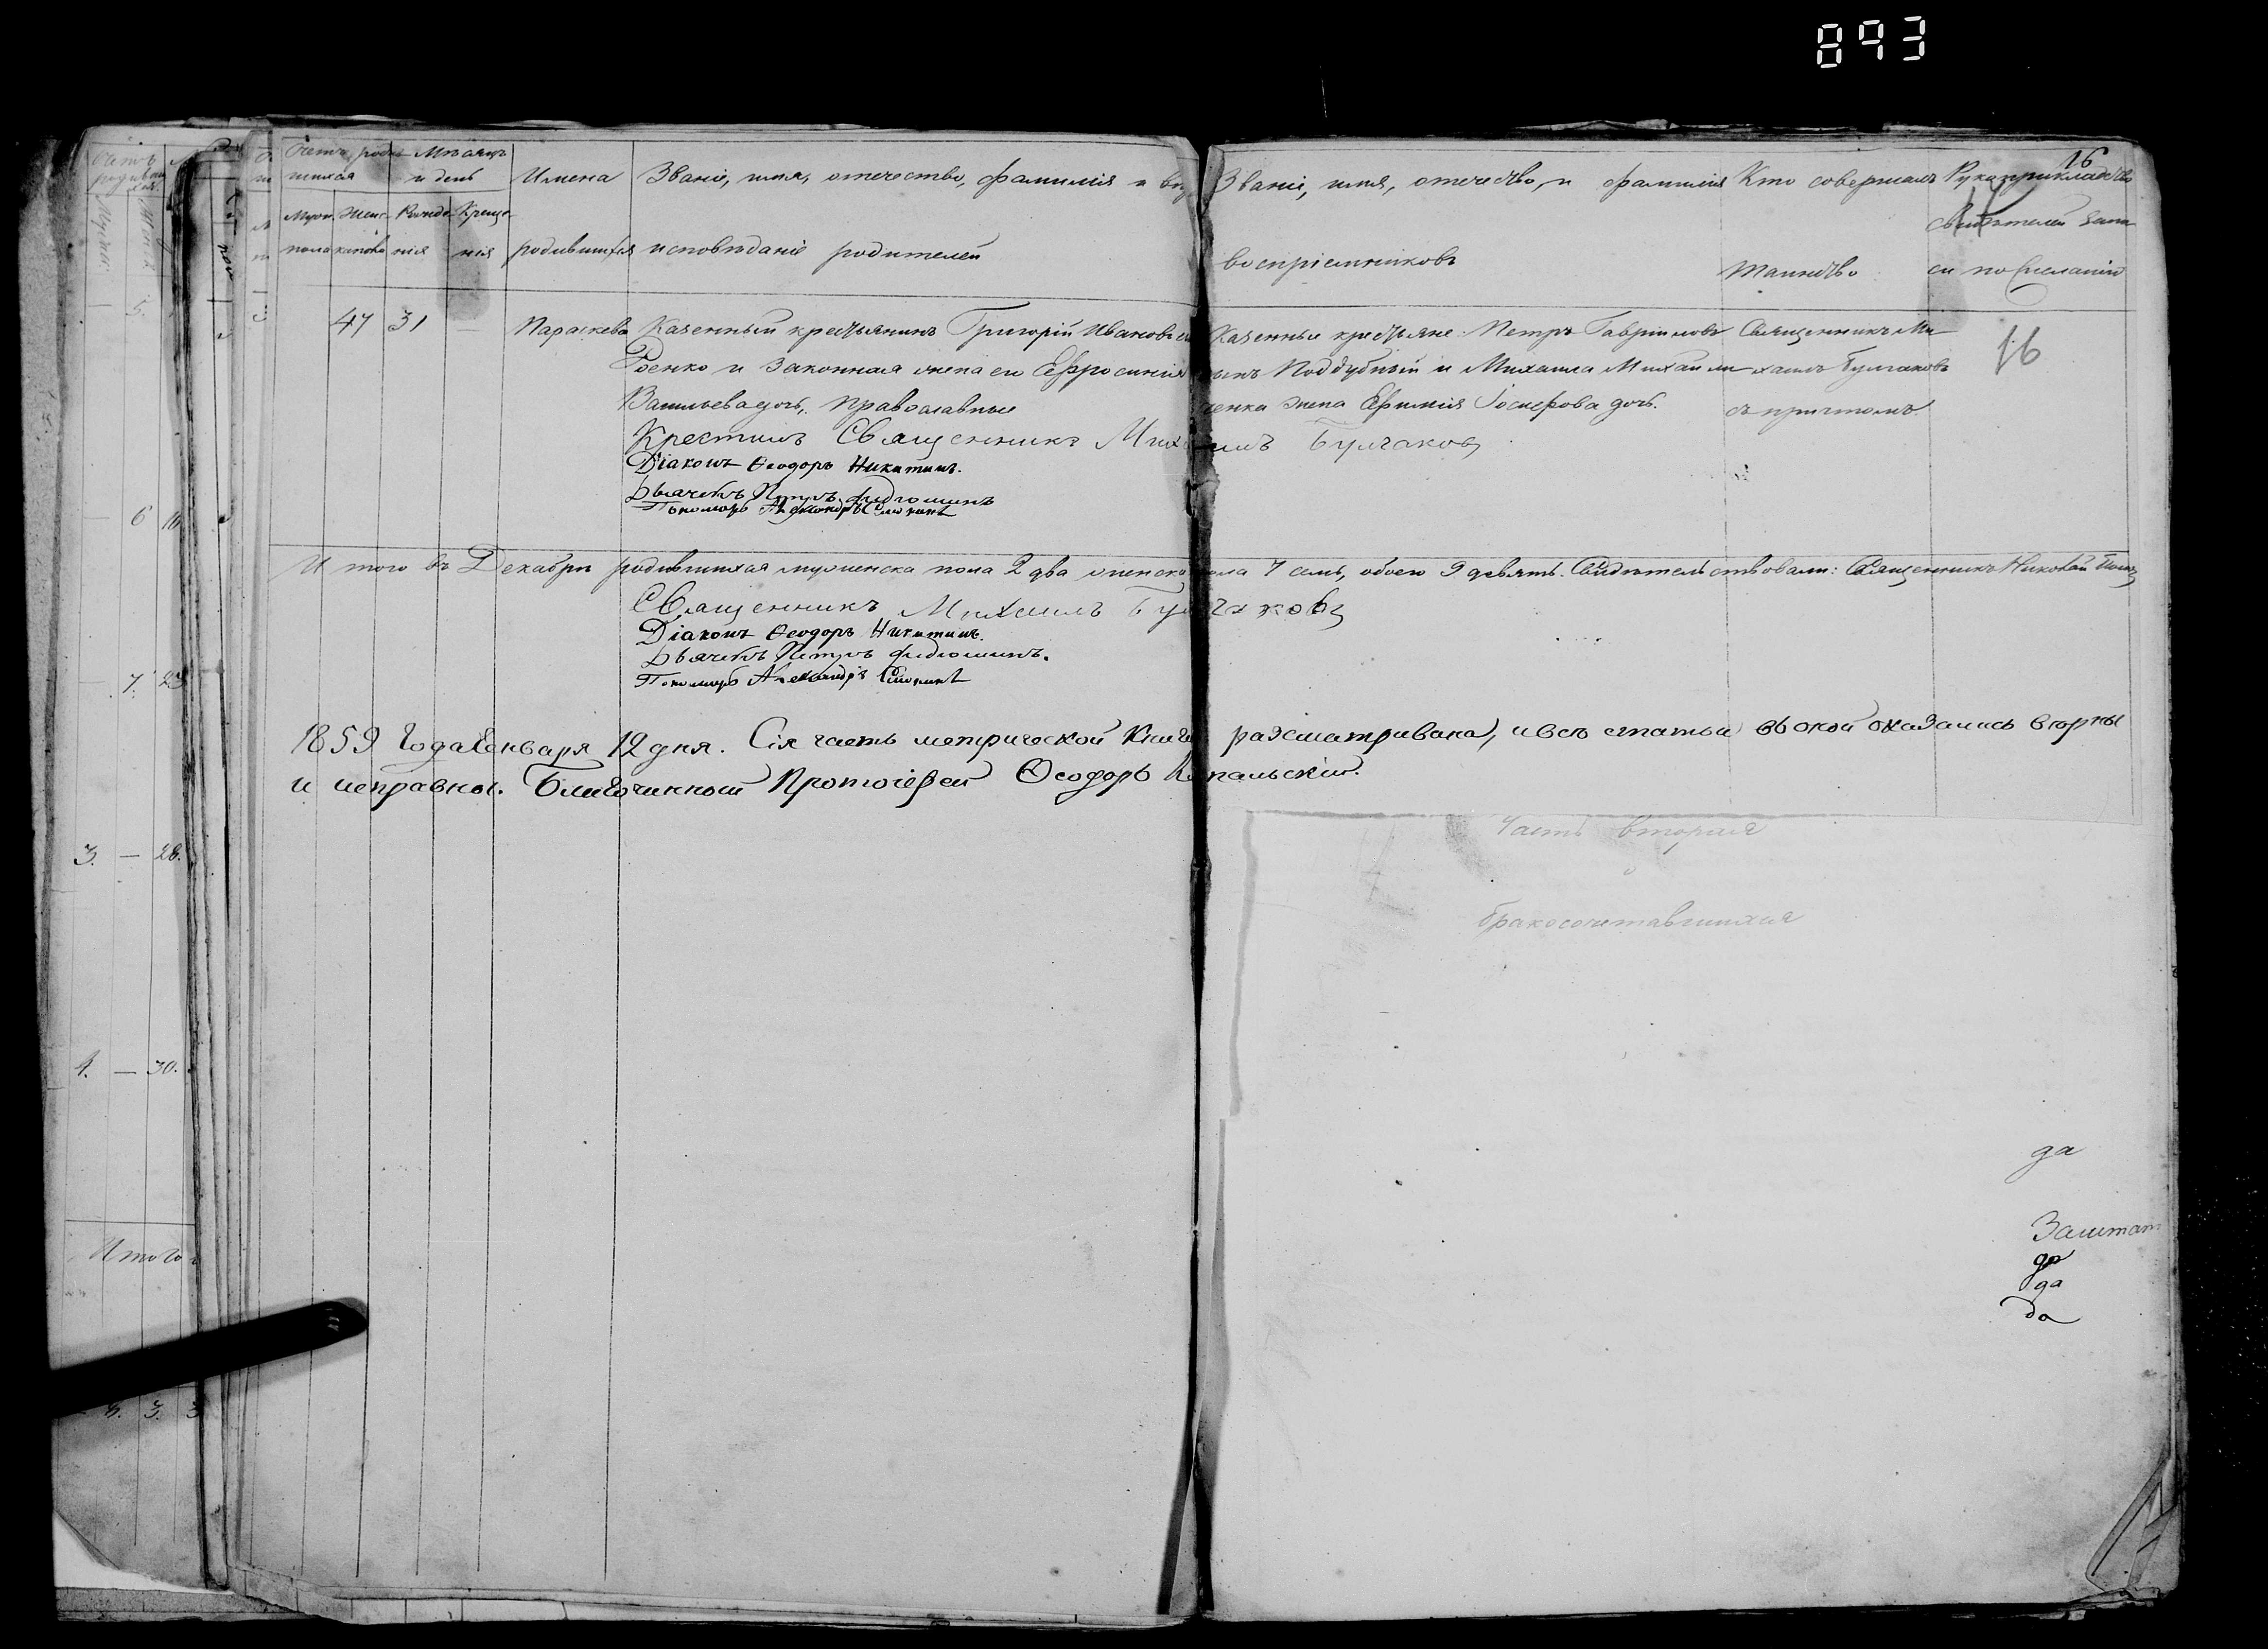 893
16
Счетъ роди Мѣсяцъ
вшихся и день Имена Званіе, имя, отечество, фамилія и вѣ Званіе, имя, отечество, и фамилія Кто совершалъ Рукоприкладство
Муж. Женс Рожде Креще свидѣтелей запи
пола каполо нія нія родившихся исповѣданіе родителей воспріемниковъ таинство си по желанію
47 31 — Параскева Казенный крестьянинъ Григорій Ивановъ Казенные крестьяне: Петръ Гавріиловъ Священникъ Ми
16
и законная жена его Ефросинія сынъ Поддубный и Михаила Михаили хаилъ Булгаковъ
Васильева дочь, православные ченка жена Ефимія Іосифова дочь. съ причтомъ.
Крестилъ Священникъ Михаилъ Булгаковъ
Діаконъ Ѳеодоръ Никитинъ.
Дьячекъ Петръ
Пономарь Александръ
Итого въ Декабрѣ родившихся мужеска пола 2 два женска пола 7 семь, обоего 9 девять. Свидѣтельствовали: Священникъ Николай
Священникъ Михаилъ Булгаковъ
Діаконъ Ѳеодоръ Никитинъ.
Дьячекъ Петръ
Пономарь Александръ
1859 Года Генваря 12 дня. Сія часть метрической Книги разсматривана, и всѣ статьи въ оной оказались вѣрны
и исправны. Благочинный Протоіерей Ѳеодоръ
Часть вторая
о
бракосочетавшихся
да
Заштат
да
да
да
5.
6 16
7. 23
3. — 28.
4. — 30.
Итого
3.